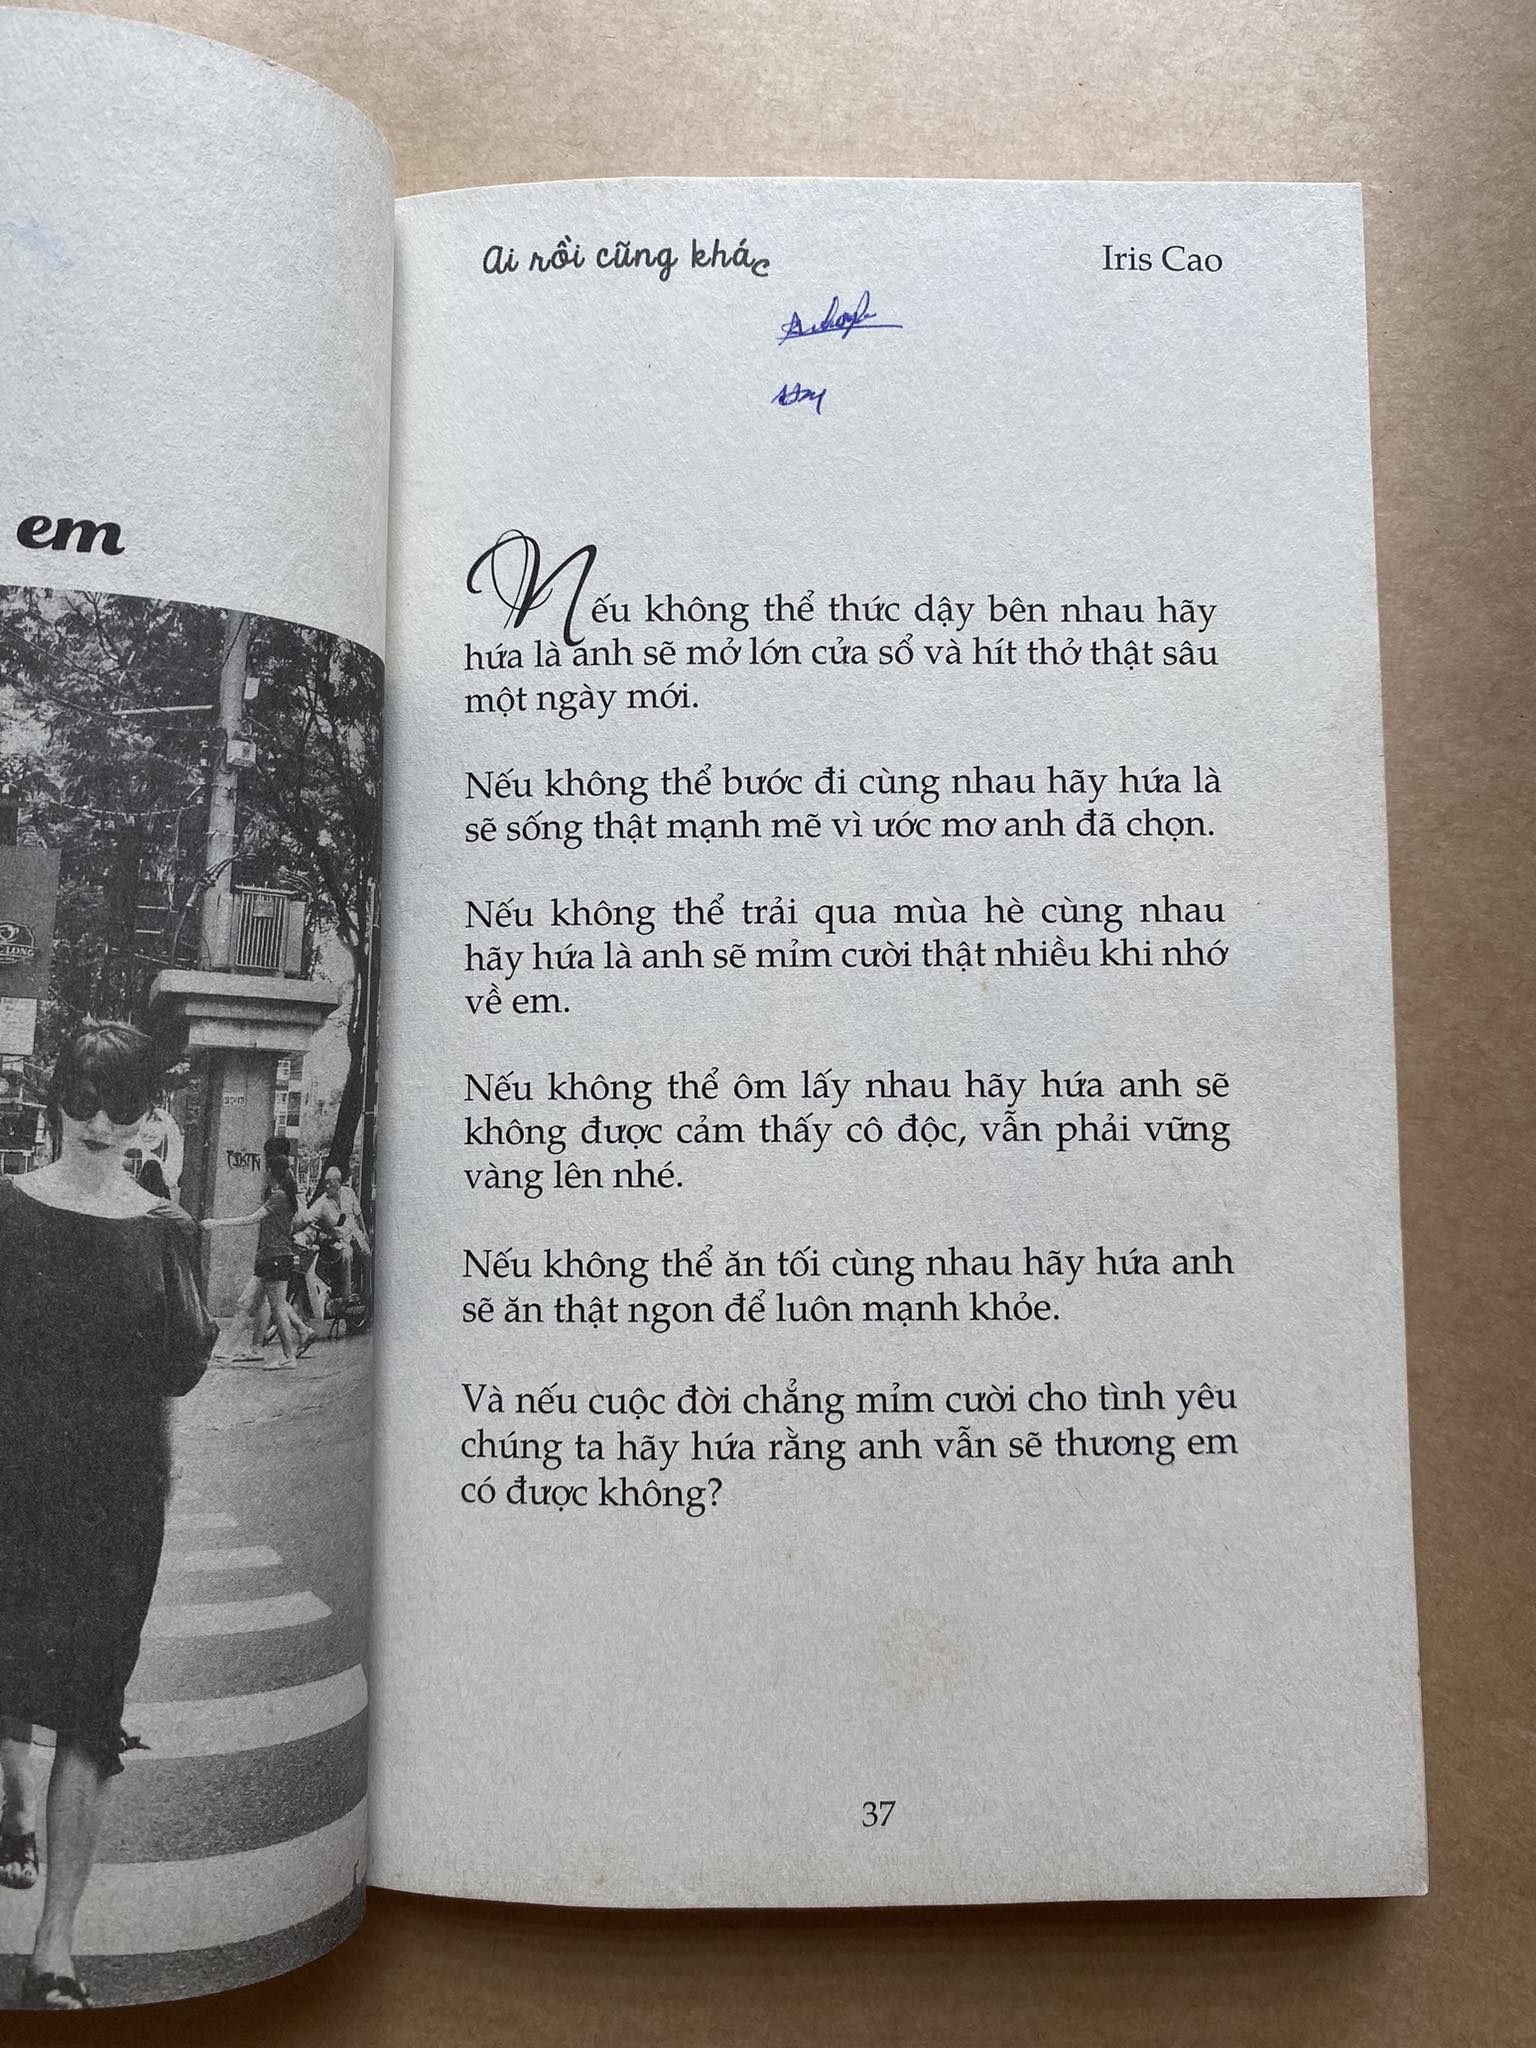 em
LONG
Ai rồi cũng khác
Iris Cao
Nếu không thể thức dậy bên nhau hãy
hứa là anh sẽ mở lớn cửa sổ và hít thở thật sâu
một ngày mới.
Nếu không thể bước đi cùng nhau hãy hứa là
sẽ sống thật mạnh mẽ vì ước mơ anh đã chọn.
Nếu không thể trải qua mùa hè cùng nhau
hãy hứa là anh sẽ mỉm cười thật nhiều khi nhớ
về em.
Nếu không thể ôm lấy nhau hãy hứa anh sẽ
không được cảm thấy cô độc, vẫn phải vững
vàng lên nhé.
Nếu không thể ăn tối cùng nhau hãy hứa anh
sẽ ăn thật ngon để luôn mạnh khỏe.
Và nếu cuộc đời chẳng mỉm cười cho tình yêu
chúng ta hãy hứa rằng anh vẫn sẽ thương em
có được không?
37